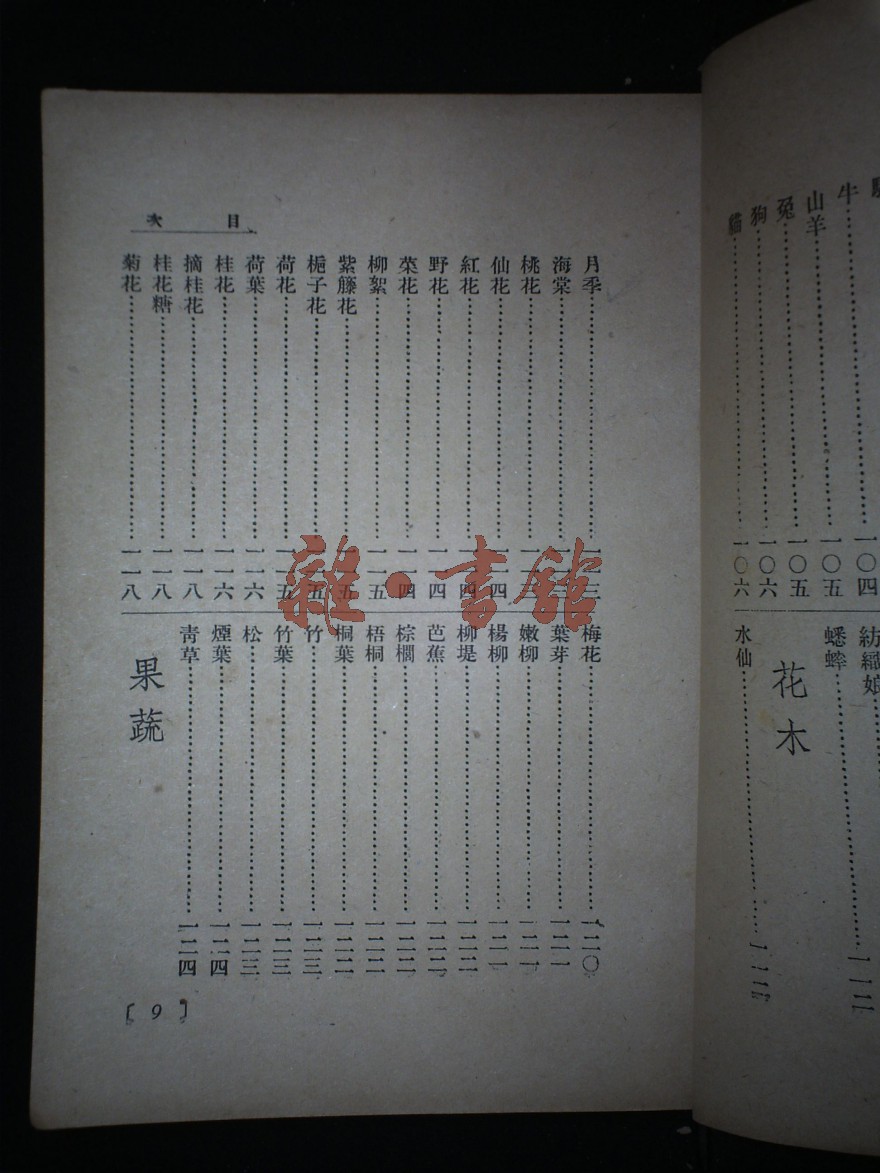 牛……一〇四
山羊……一〇五
兔……一〇五
狗……一〇六
貓……一〇六
紡織娘……一一二
蟋蟀……一一二
花木
水仙……
目次
月季……一一三
海棠……
桃花……
仙花……一一四
紅花……一一四
野花……一一四
菜花……一一四
柳絮……一一五
紫籐花……一一五
梔子花……一一五
荷花……一一五
荷葉……一一六
桂花……一一六
摘桂花……一一八
桂花糖……一一八
菊花……一一八
梅花……一二〇
葉芽……一二一
嫩柳……一二一
楊柳……一二一
柳堤……一二二
芭蕉……一二二
棕櫚……一二二
梧桐……一二二
桐葉……一二二
竹……一二三
竹葉……一二三
松……一二三
煙葉……一二四
靑草……一二四
果蔬
〔9〕
雜·書館